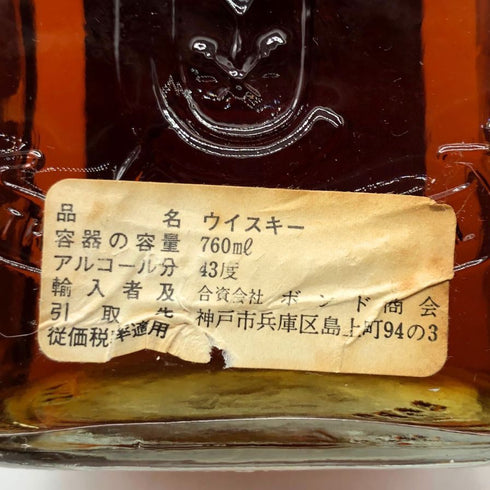 品名 ウイスキー
容器の容量 760ml
アルコール分 43度
輸入者及 合資会社 ボンド商会
引取先 神戸市兵庫区島上町94の3
従価税率適用